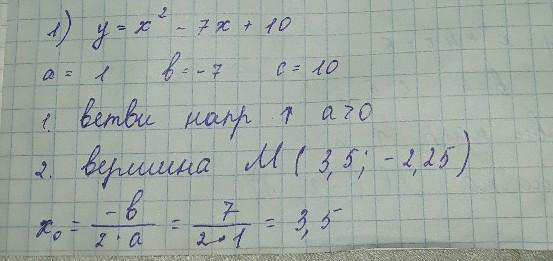 1) y = x² - 7x + 10
a = 1 b = -7 c = 10
1. ветви напр ↑ a > 0
2. вершина M ( 3,5; -2,25 )
x₀ = -b / 2·a = 7 / 2·1 = 3,5